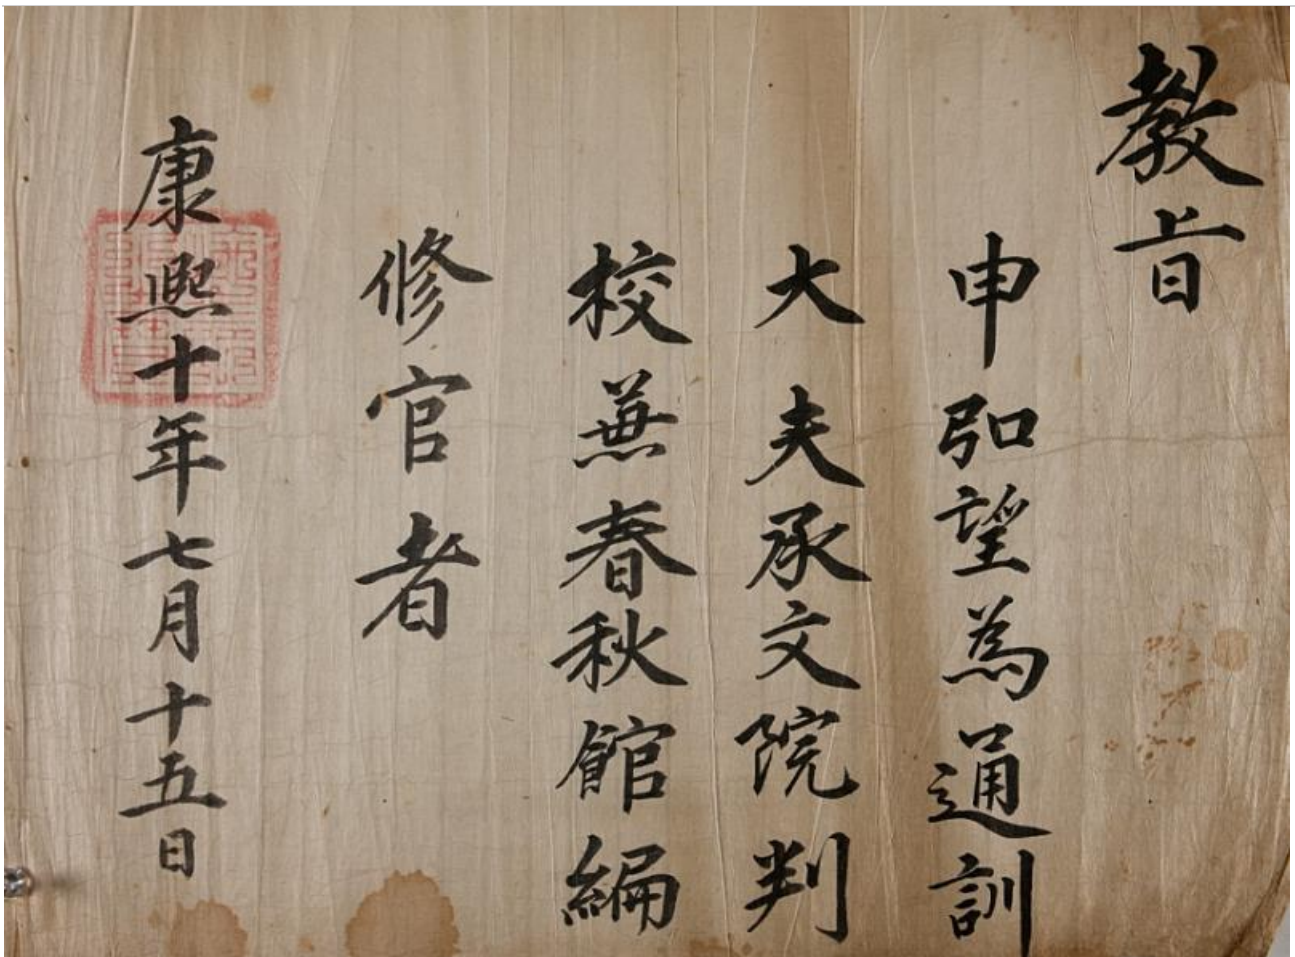 教旨
申弘望為通訓
大夫承文院判
校兼春秋館編
修官者
康熙十年七月十五日